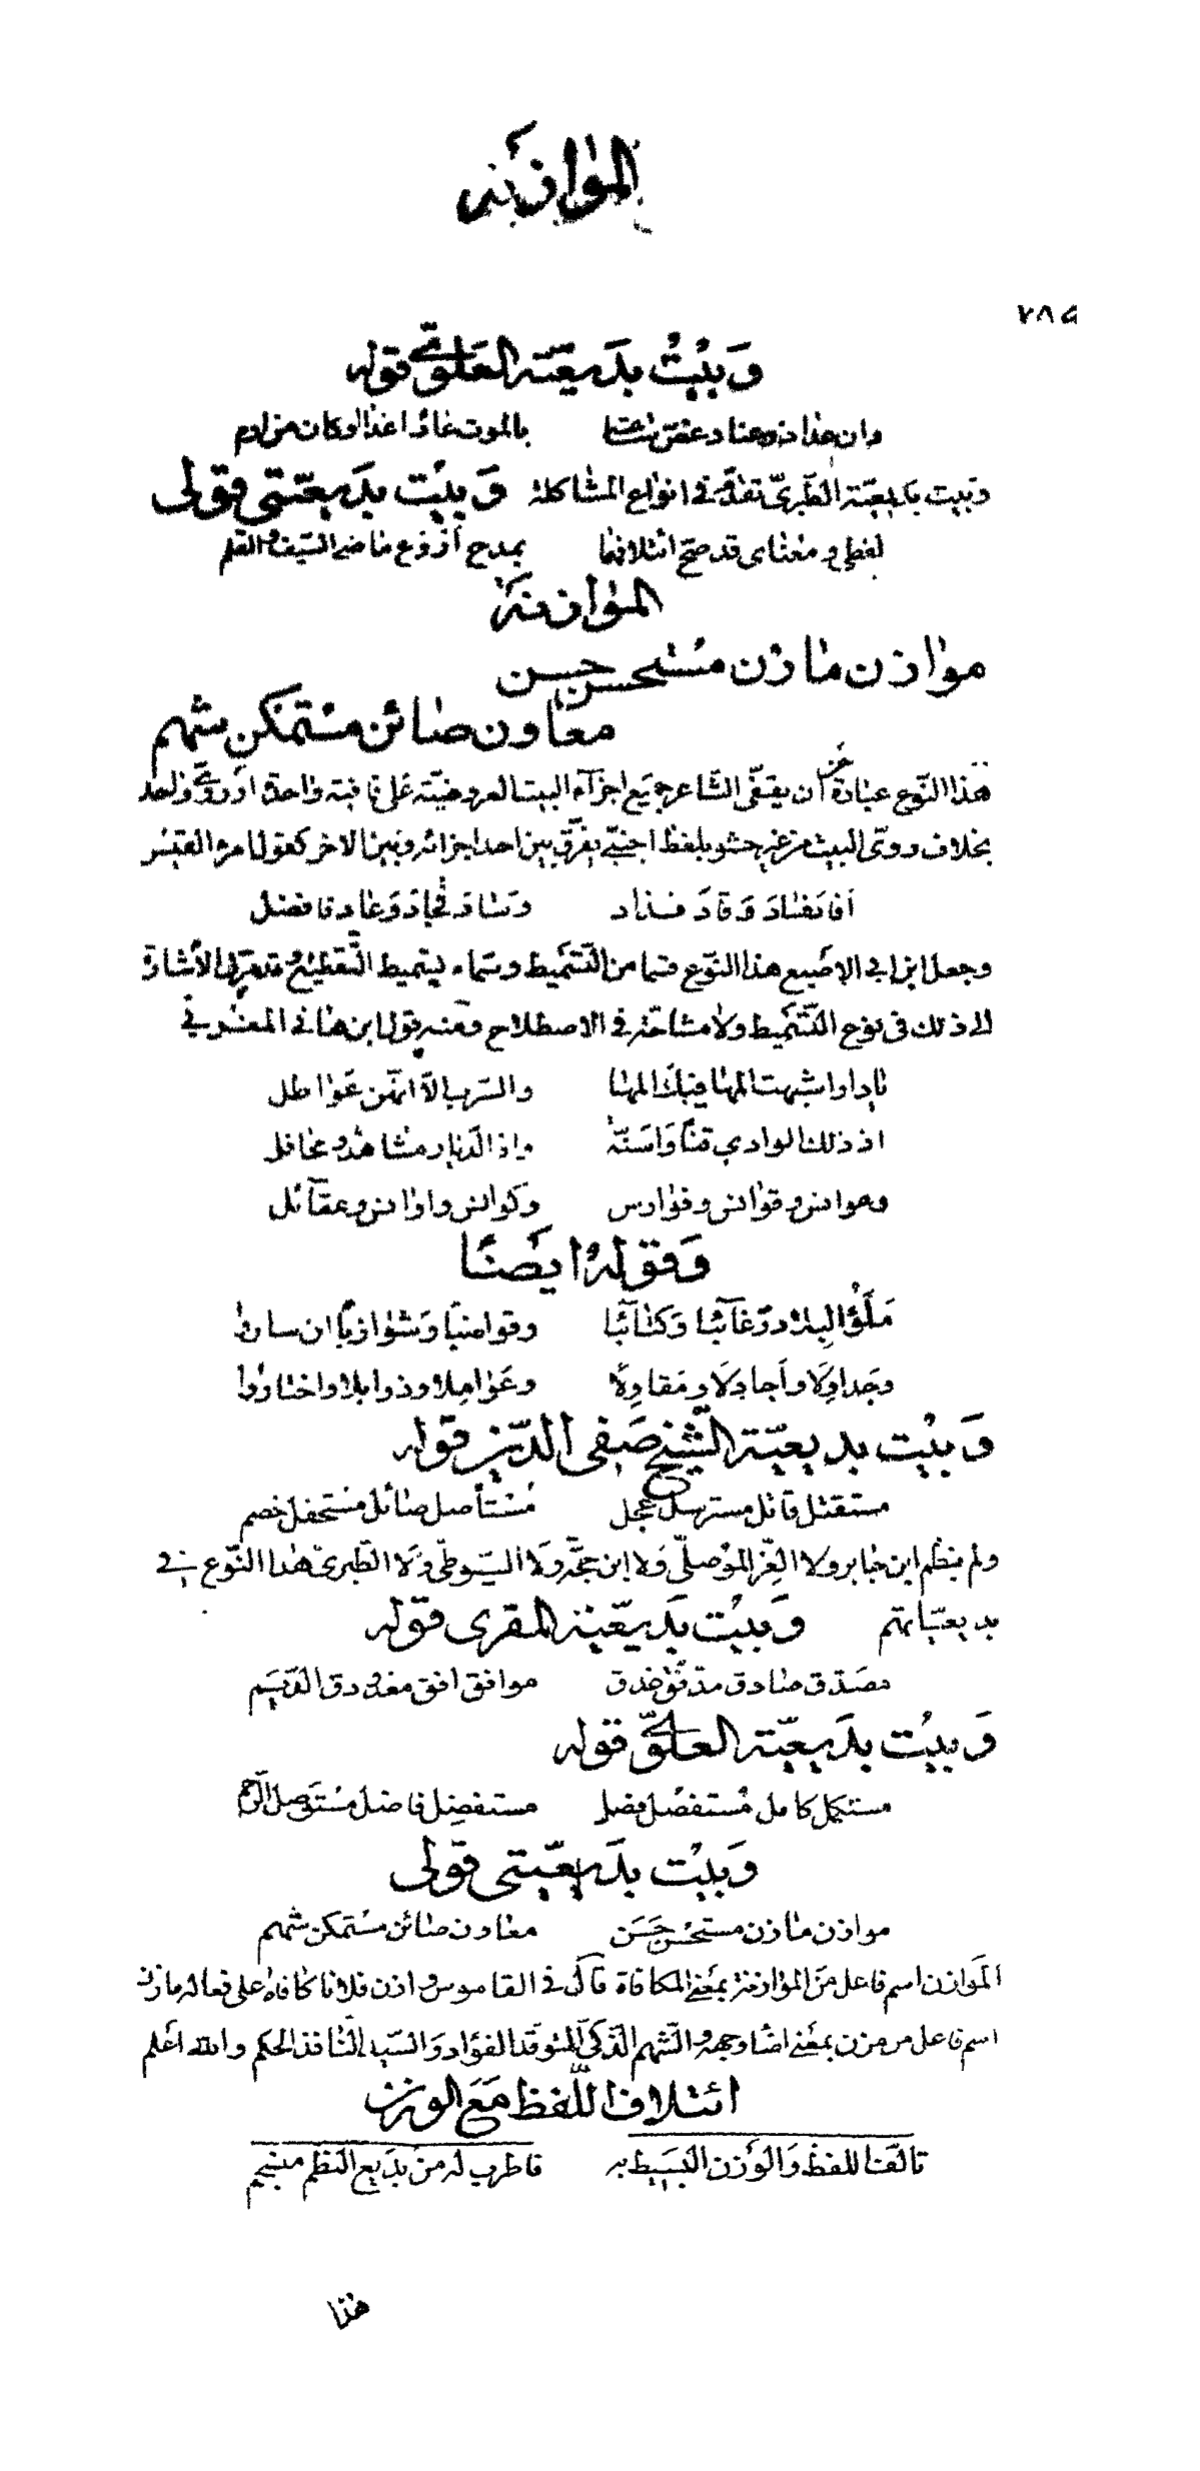 الموازنة
٧٨٥
وَبَيْتُ بديعيّة العلويّ قوله
وان هذا وبيت بديعيّة الطبريّ تقدّم في انواع المشاكلة وَبَيْت بديعيّتي قولي
لفظي ومعناى قد صحّ ائتلافهما بمدح اروع ماضي السّيف والقلم
الموازنة
موازن مازن مستحسن حسن
معاون صائن مستمكن شهم
هذا النّوع عبارة عن ان يقفّى الشّاعر جميع اجزآء البيت العروضيّة على قافية واحدة او رويّ واحد
بخلاف روىّ البيت من غير حشو بلفظ اجنبيّ يفرّق بين احد اجزائه وبين الاخر كقول امرء القيس
افاد فساد وقاد فذاد وشاد فجاد وعاد فافضل
وجعل ابن ابي الاصبع هذا النّوع قسما من التّسميط وسماه بتسميط التّقطيع وقد مرّت الاشارة
الى ذلك فى نوع التّسميط ولا مشاحّة في الاصطلاح ومنه قول ابن هانى المغربي
يا دار اشبهت المها فيك المها والسّرب الّا انّهنّ عواطل
اذ ذلك الوادي قنًا واسنّة واذ الدّيار مشاهد ومحافل
وعوابس وقوانس وفوارس وكوانس واوانس وعقآئل
وَقوله ايضًا
مَلَؤُا البلاد رغآئبا وكتآئبا وقواضبًا وشوازبًا ان ساروا
وجداولًا واجادلًا ومقاولًا وعواملا وذوابلا واختاروا
وَبَيْت بديعيّة الشّيخ صفى الدّين قوله
مستقتل قاتل مسترسل عجل مستأصل صائل مستحفل خصم
ولم ينظم ابن جابر ولا العزّ الموصلىّ ولا ابن حجّة ولا السّيوطىّ ولا الطّبرىّ هذا النّوع في
بديعيّاتهم وَبَيْت بديعيّة المقرى قوله
مصدّق صادق موافق افق وَبَيْت بديعيّة العلويّ قوله
مستكمل كامل مستفصل فصل مستفضل فاضل وَبَيْت بديعيّتي قولي
موازن مازن مستحسن حَسَن معاون صائن مستمكن شهم
الموازن اسم فاعل من الموازنة بمعنى المكافاة قال في القاموس وازن فلانا كافاه على فعاله مازن
اسم فاعل من مزن بمعنى اضاء وجهه والشّهم الذّكىّ المتوقّد الفؤاد والسّيد النّافذ الحكم والله اعلم
ائتلاف اللّفظ مع الوزن
تالّف اللفظ والوزن البسيط به فاطرب له من بديع النّظم منسجم
هذا